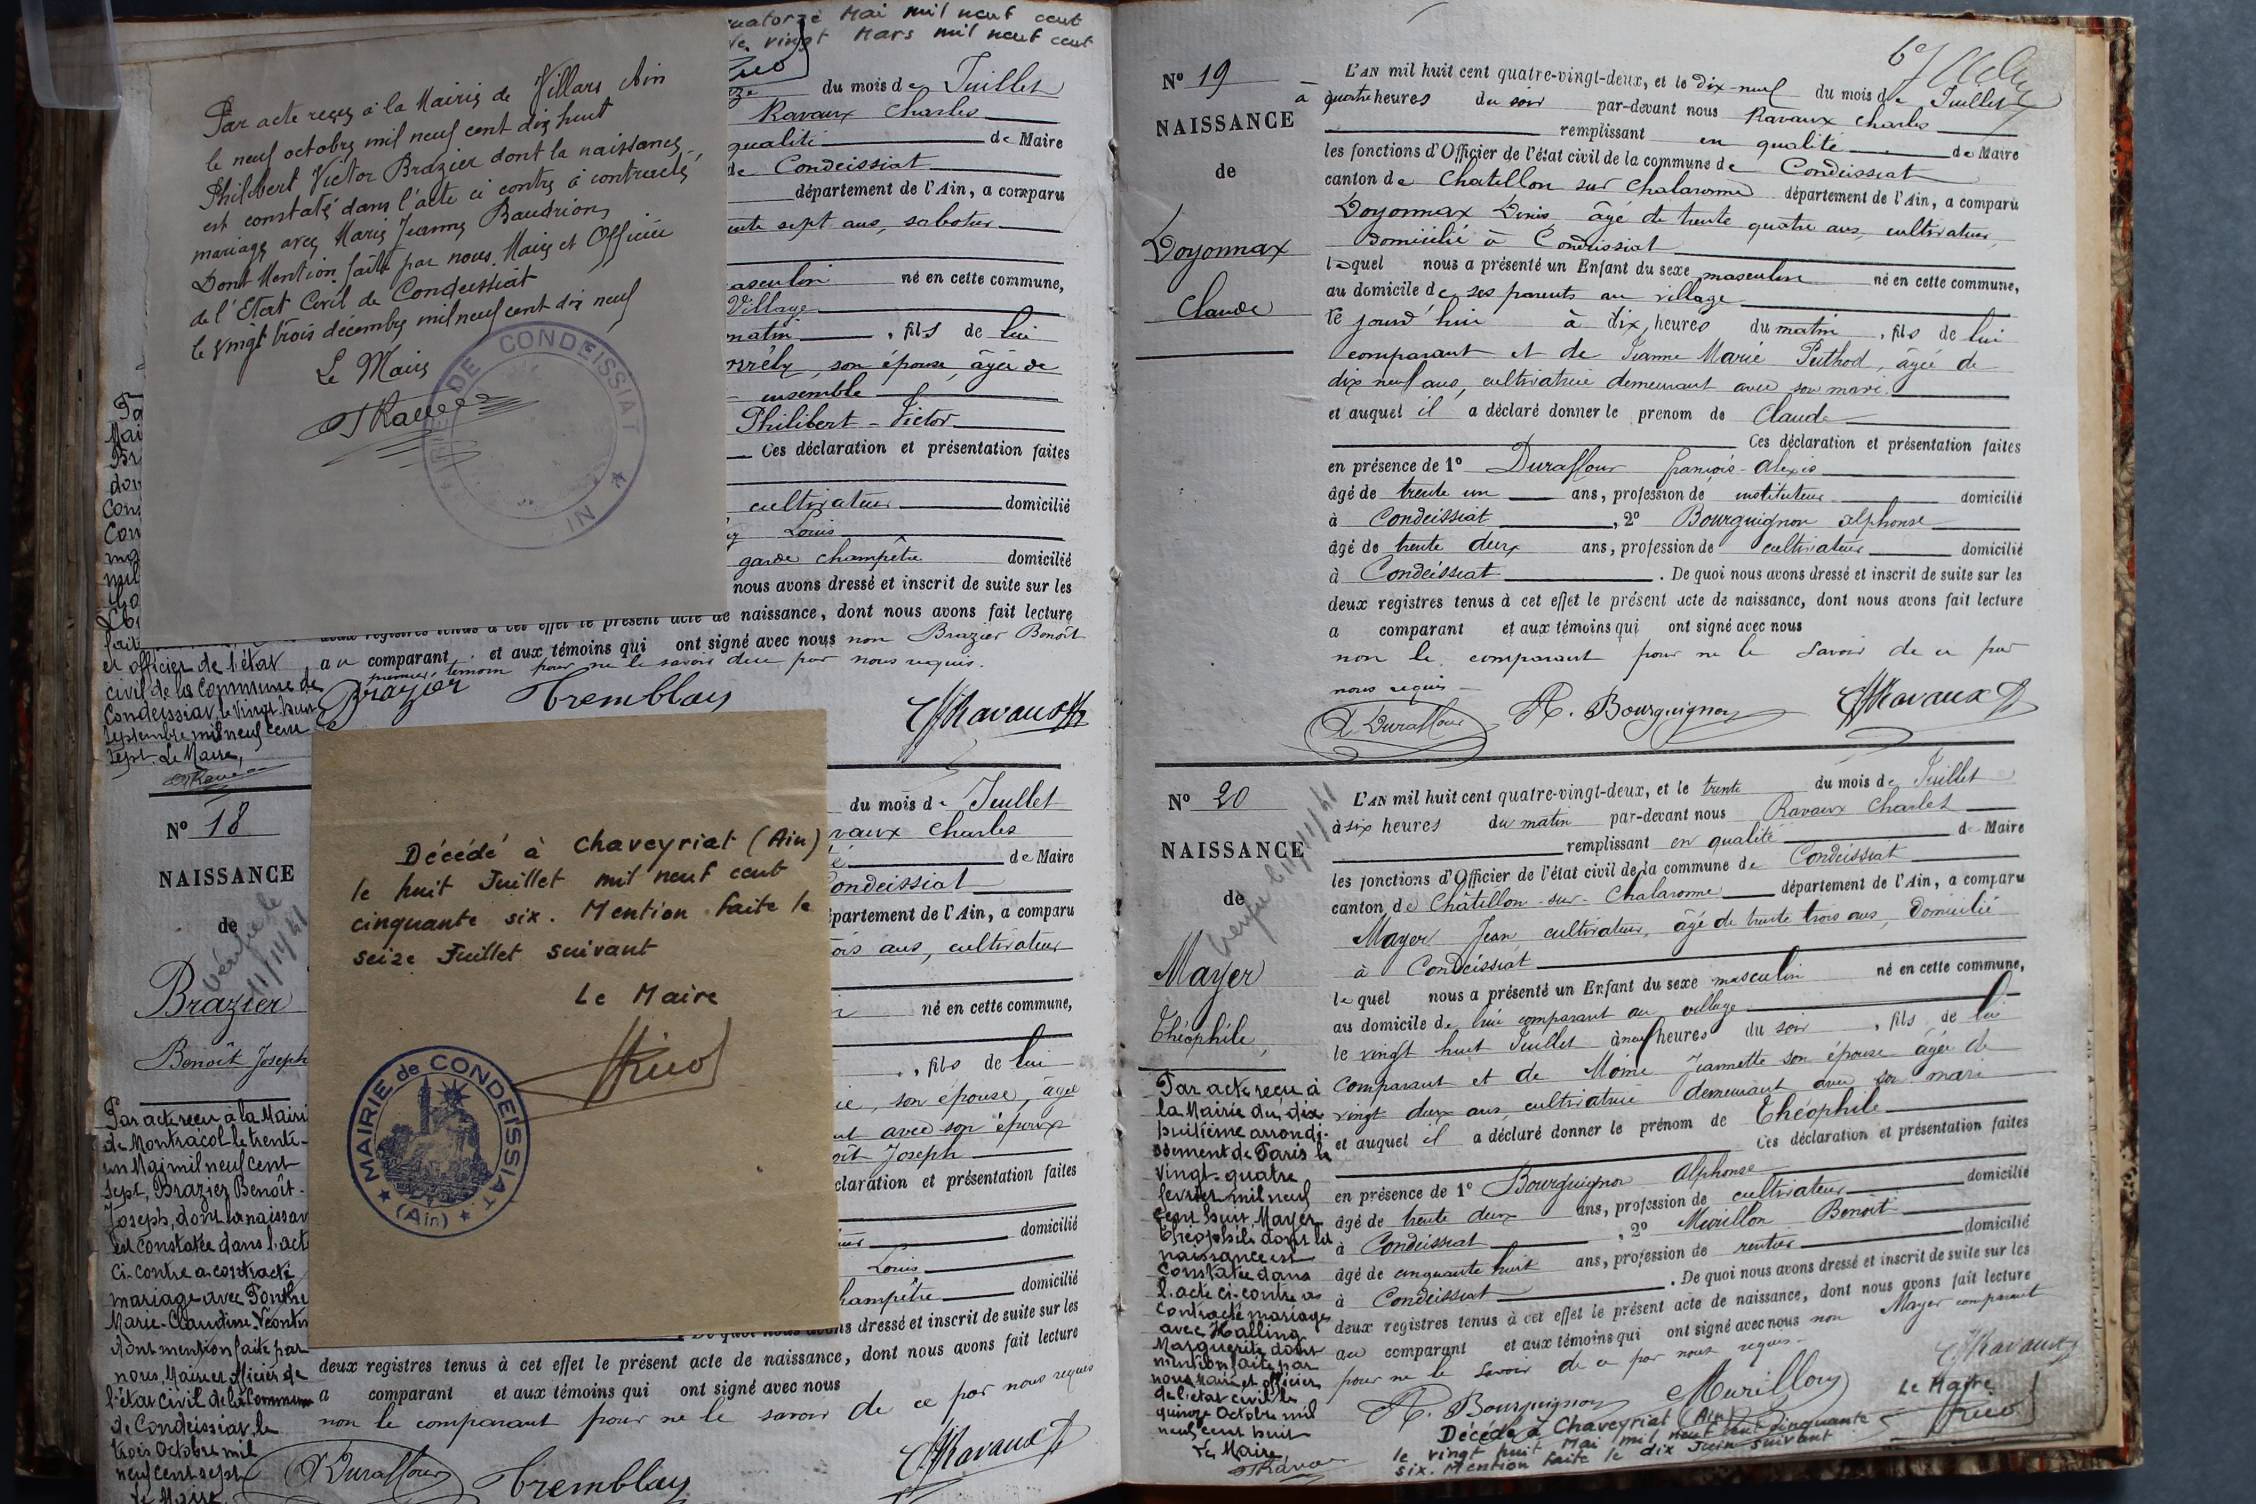 Par acte reçu à la Mairie de Villars Ain
le neuf octobre mil neuf cent dix huit
Philibert Victor Brazier dont la naissance
est constaté dans l'acte ci contre à contracté
mariage avec Marie Jeanne Baudrion
Dont Mention faite par nous Maire et Officier
de l'Etat Civil de Condeissiat
le vingt trois décembre mil neuf cent dix neuf
Le Maire
MAIRIE DE CONDEISSIAT
quatorze Mai mil neuf cent
vingt Mars mil neuf cent
du mois de Juillet
Ravaux Charles
qualité de Maire
de Condeissiat
département de l'Ain, a comparu
sept ans, sabotier
masculin né en cette commune,
Village
matin , fils de lui
son épouse, âgée de
ensemble
Philibert-Victor
Ces déclaration et présentation faites
cultivateur domicilié
Louis
garde champêtre domicilié
nous avons dressé et inscrit de suite sur les
deux registres tenus à cet effet le présent acte de naissance, dont nous avons fait lecture
au comparant et aux témoins qui ont signé avec nous non Brazier Benoît
premier témoin pour ne le savoir de ce par nous requis.
Brazier Tremblay Ravaux
et officier de l'état
civil de la Commune de
Condeissiat, le vingt-huit
septembre mil neuf cent
sept. Le Maire,
N° 18
NAISSANCE
de
Vérifié le
11/11/41
Brazier
Benoît Joseph
Par acte reçu à la Mairie
de Montracol le trente-
un Mai mil neuf cent
sept, Brazier Benoît-
Joseph, dont la naissan
est constatée dans l'acte
ci-contre a contracté
mariage avec
Marie-Claudine
dont mention faite par
nous, Maire et officier de
l'état civil de la Commune
de Condeissiat, le
trois Octobre mil
neuf cent sept
Le Maire,
Décédé à Chaveyriat (Ain)
le huit Juillet mil neuf cent
cinquante six. Mention faite le
seize Juillet suivant
Le Maire
MAIRIE de CONDEISSIAT
(Ain)
du mois de Juillet
Ravaux Charles
de Maire
Condeissiat
département de l'Ain, a comparu
ans, cultivateur
né en cette commune,
, fils de lui
son épouse, âgée
avec son époux
Joseph
déclaration et présentation faites
domicilié
Louis
champêtre domicilié
De quoi nous avons dressé et inscrit de suite sur les
deux registres tenus à cet effet le présent acte de naissance, dont nous avons fait lecture
a comparant et aux témoins qui ont signé avec nous
non le comparant pour ne le savoir de ce par nous requis
Duraffour Tremblay Ravaux
67
N° 19
NAISSANCE
de
Doyonnax
Claude
L'AN mil huit cent quatre-vingt-deux, et le dix-neuf du mois de Juillet
à quatre heures du soir par-devant nous Ravaux Charles
remplissant en qualité de Maire
les fonctions d'Officier de l'état civil de la commune de Condeissiat
canton de Chatillon sur Chalaronne département de l'Ain, a comparu
Doyonnax Denis âgé de trente quatre ans, cultivateur,
domicilié à Condeissiat
lequel nous a présenté un Enfant du sexe masculin né en cette commune,
au domicile de ses parents au village
le jourd'hui à dix heures du matin , fils de lui
comparant et de Jeanne Marie Puthod, âgée de
dix neuf ans, cultivatrice demeurant avec son mari.
et auquel il a déclaré donner le prénom de Claude
Ces déclaration et présentation faites
en présence de 1° Duraffour françois-Alexis
âgé de trente un ans, profession de instituteur domicilié
à Condeissiat , 2° Bourguignon Alphonse
âgé de trente deux ans, profession de cultivateur domicilié
à Condeissiat . De quoi nous avons dressé et inscrit de suite sur les
deux registres tenus à cet effet le présent acte de naissance, dont nous avons fait lecture
a comparant et aux témoins qui ont signé avec nous
non le comparant pour ne le savoir de ce par
nous requis
Duraffour A. Bourguignon Ravaux
N° 20
NAISSANCE
de
Vérifié le 11/11/41
Mayer
Théophile,
Par acte reçu à
la Mairie du dix
huitième arrondi-
ssement de Paris le
vingt-quatre
février mil neuf
cent huit, Mayer
Théophile dont la
naissance est
constatée dans
l'acte ci-contre a
contracté mariage
avec Halling
Marguerite dont
mention faite par
nous maire et officier
de l'état civil le
quinze Octobre mil
neuf cent huit
Le Maire
L'AN mil huit cent quatre-vingt-deux, et le trente du mois de Juillet
à six heures du matin par-devant nous Ravaux Charles
remplissant en qualité de Maire
les fonctions d'Officier de l'état civil de la commune de Condeissiat
canton de Châtillon-sur-Chalaronne département de l'Ain, a comparu
Mayer Jean, cultivateur, âgé de trente trois ans, domicilié
à Condeissiat
lequel nous a présenté un Enfant du sexe masculin né en cette commune,
au domicile de lui comparant au village
le vingt huit Juillet à neuf heures du soir , fils de lui
comparant et de Moine Jeannette son épouse âgée de
vingt deux ans, cultivatrice demeurant avec son mari
et auquel il a déclaré donner le prénom de Théophile
Ces déclaration et présentation faites
en présence de 1° Bourguignon Alphonse
âgé de trente deux ans, profession de cultivateur domicilié
à Condeissiat , 2° Murillon Benoît
âgé de cinquante huit ans, profession de rentier domicilié
à Condeissiat . De quoi nous avons dressé et inscrit de suite sur les
deux registres tenus à cet effet le présent acte de naissance, dont nous avons fait lecture
au comparant et aux témoins qui ont signé avec nous non Mayer comparant
pour ne le savoir de ce par nous requis
A. Bourguignon Murillon Ravaux
Le Maire
Décédé à Chaveyriat (Ain)
le vingt huit Mai mil neuf cent cinquante
six. Mention faite le dix Juin suivant